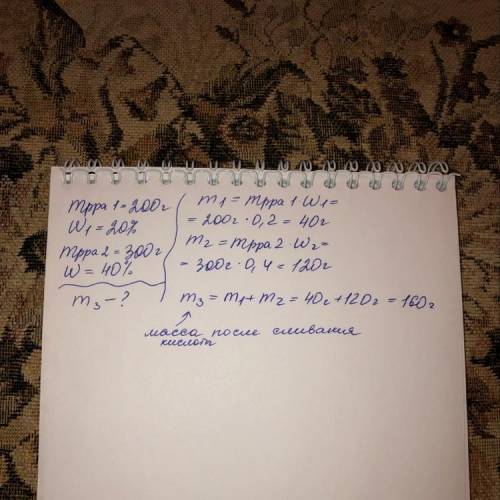 mрра 1 = 200г
W₁ = 20%
mрра 2 = 300г
W = 40%
m₃ - ?
m₁ = mрра 1 · W₁ =
= 200г · 0,2 = 40г
m₂ = mрра 2 · W₂ =
= 300г · 0,4 = 120г
m₃ = m₁ + m₂ = 40г + 120г = 160г
масса после сливания
кислоты